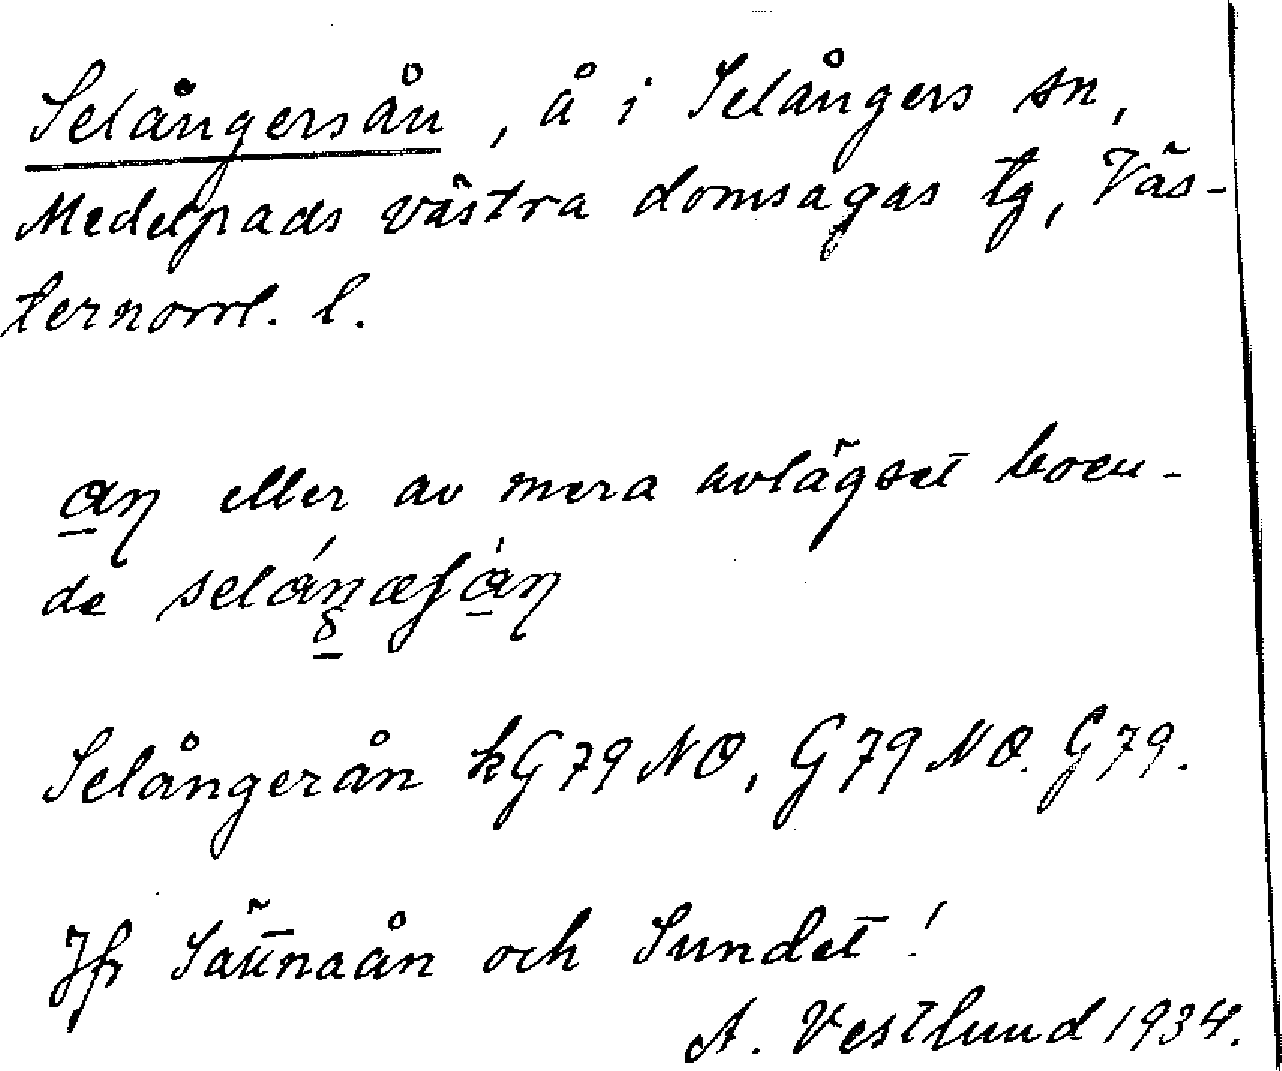 Selångersån, å i Selångers sn,
Medelpads västra domsagas tg, Väs-
ternorrl. l.
eller av mera avlägset boen-
de
Selångerån kG79NO, G79NO. G79.
Jfr och Sundet!
A. Vestlund 1934.